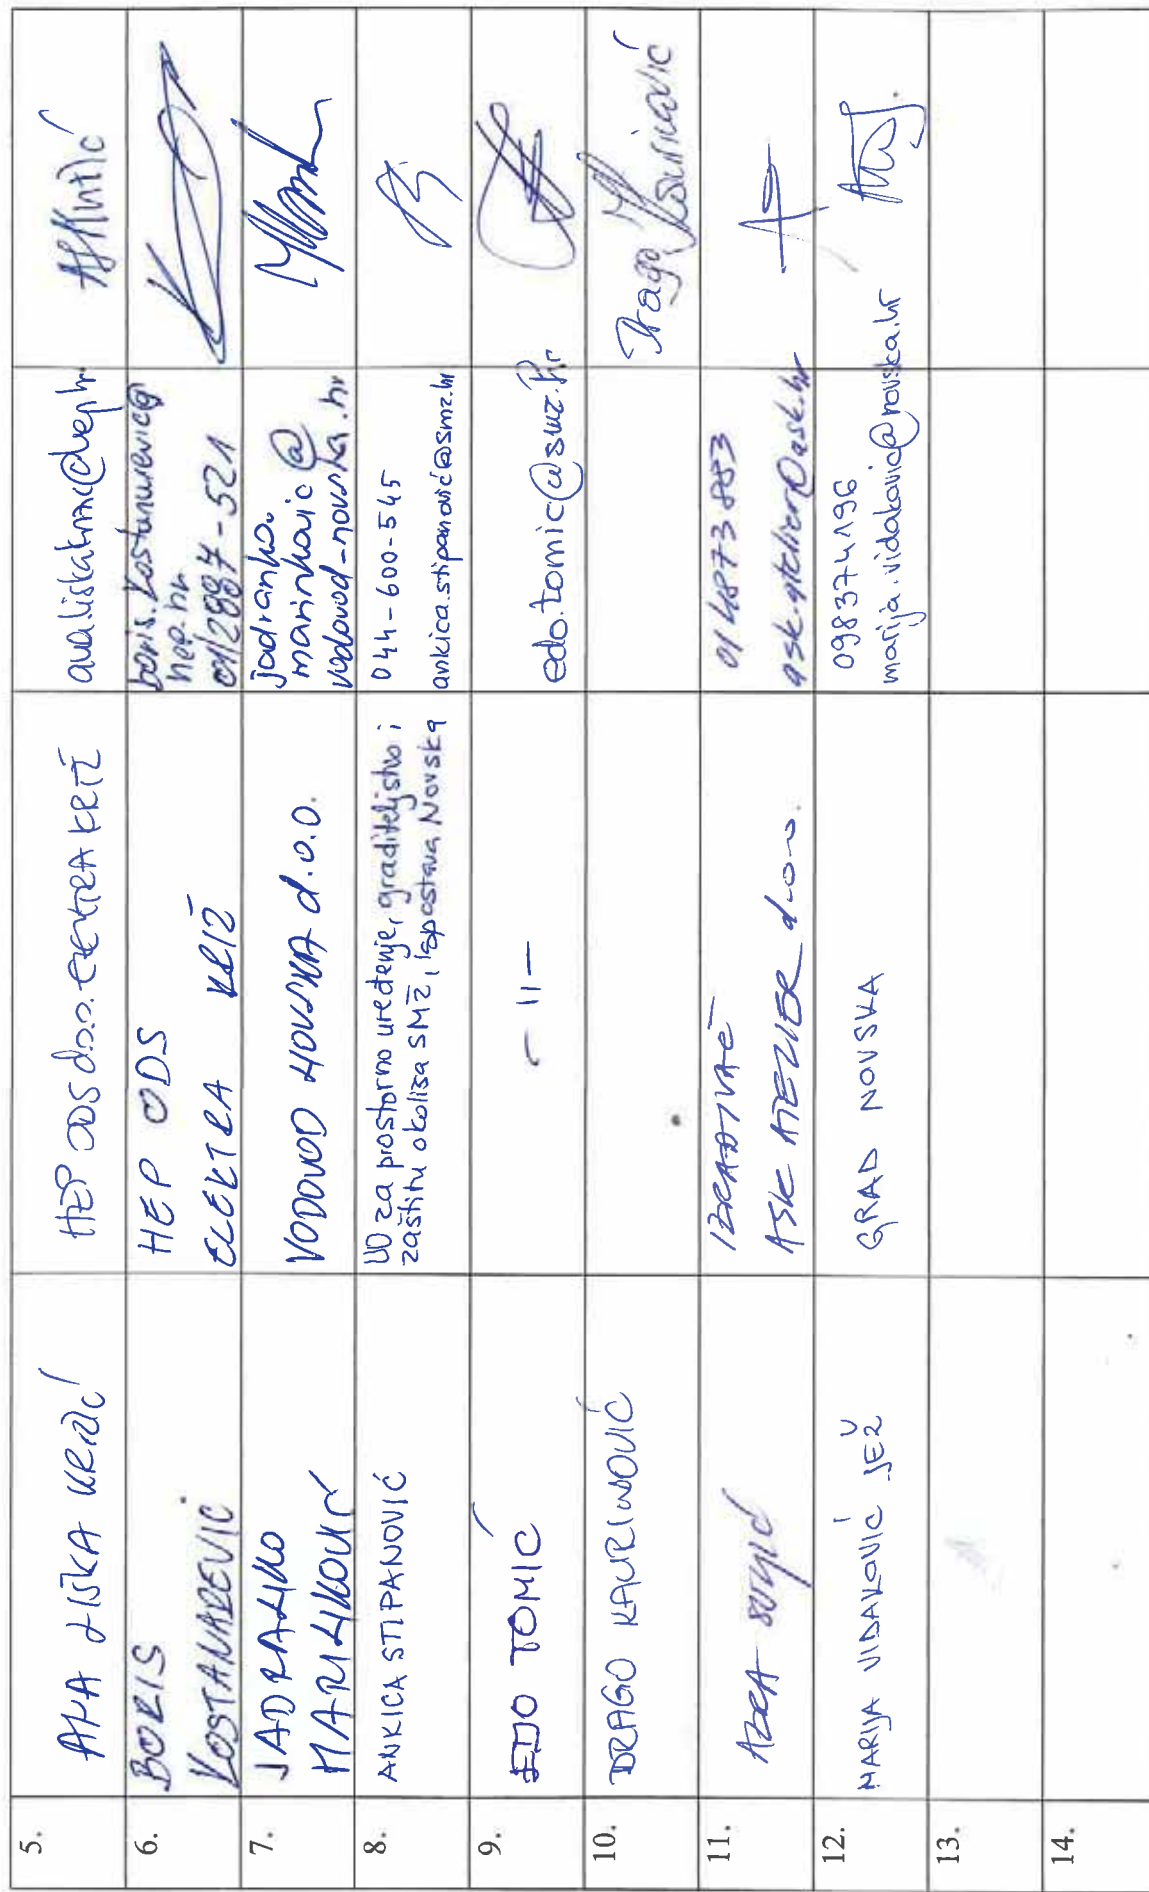 5.
ANA LIŠKA KRIZIĆ
HEP ODS d.o.o. ELEKTRA KRIŽ
6.
BORIS
KOSTANAREVIĆ
HEP ODS
ELEKTRA KRIŽ
boris.kostanarevic@
hep.hr
01/2887-521
7.
JADRANKO
MARINKOVIĆ
VODOVOD NOVSKA d.o.o.
jadranko.
marinkovic@
vodovod-novska.hr
8.
ANKICA STIPANOVIĆ
UO za prostorno uređenje, graditeljstvo i
zaštitu okoliša SMŽ, Ispostava Novska
044-600-545
ankica.stipanović@smz.hr
9.
EDO TOMIĆ
- 11 -
edo.tomic@smz.hr
10.
DRAGO KAURINOVIĆ
Drago Kaurinović
11.
AZRA
IZRAĐIVAČ
ASK ATELIER d.o.o.
01 4873 883
ask-atelier@ask.hr
12.
MARIJA VIDAKOVIĆ JEŽ
GRAD NOVSKA
098374196
marija.vidakovic@novska.hr
13.
14.